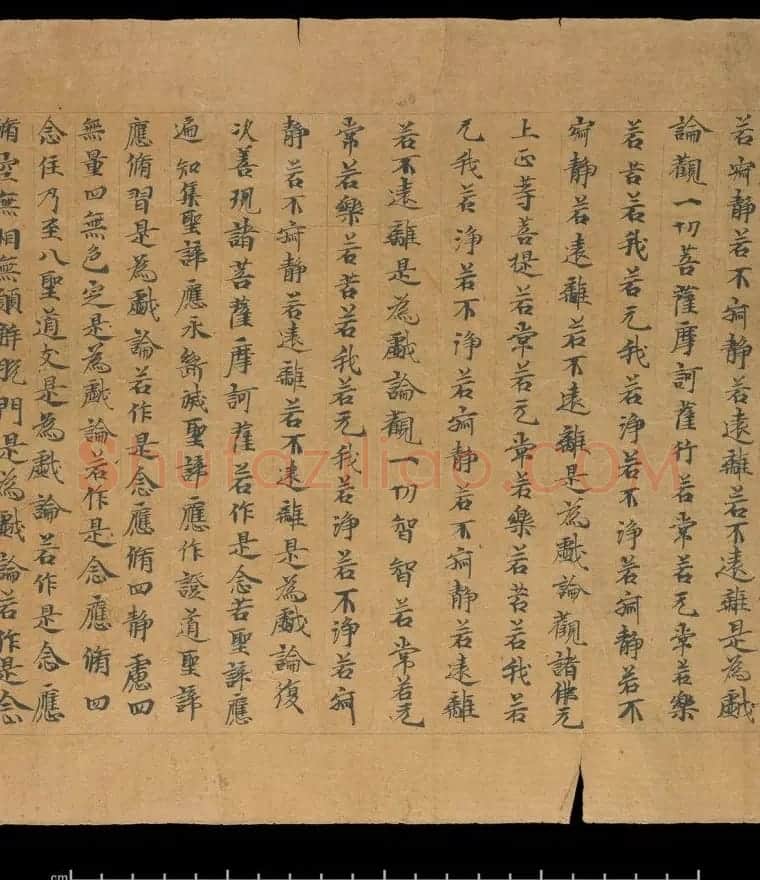 若寂静若不寂静若遠離若不遠離是為戲
論觀一切菩薩摩訶薩行若常若无常若樂
若苦若我若无我若净若不净若寂静若不
寂静若遠離若不遠離是為戲論觀諸佛无
上正等菩提若常若无常若樂若苦若我若
无我若净若不净若寂静若不寂静若遠離
若不遠離是為戲論觀一切智智若常若无
常若樂若苦若我若无我若净若不净若寂
静若不寂静若遠離若不遠離是為戲論復
次善現諸菩薩摩訶薩若作是念苦聖諦應
遍知集聖諦應永斷滅聖諦應作證道聖諦
應脩習是為戲論若作是念應脩四静慮四
無量四無色定是為戲論若作是念應脩四
念住乃至八聖道支是為戲論若作是念應
脩空無相無願解脫門是為戲論若作是念
Shufaziliao.COM
cm